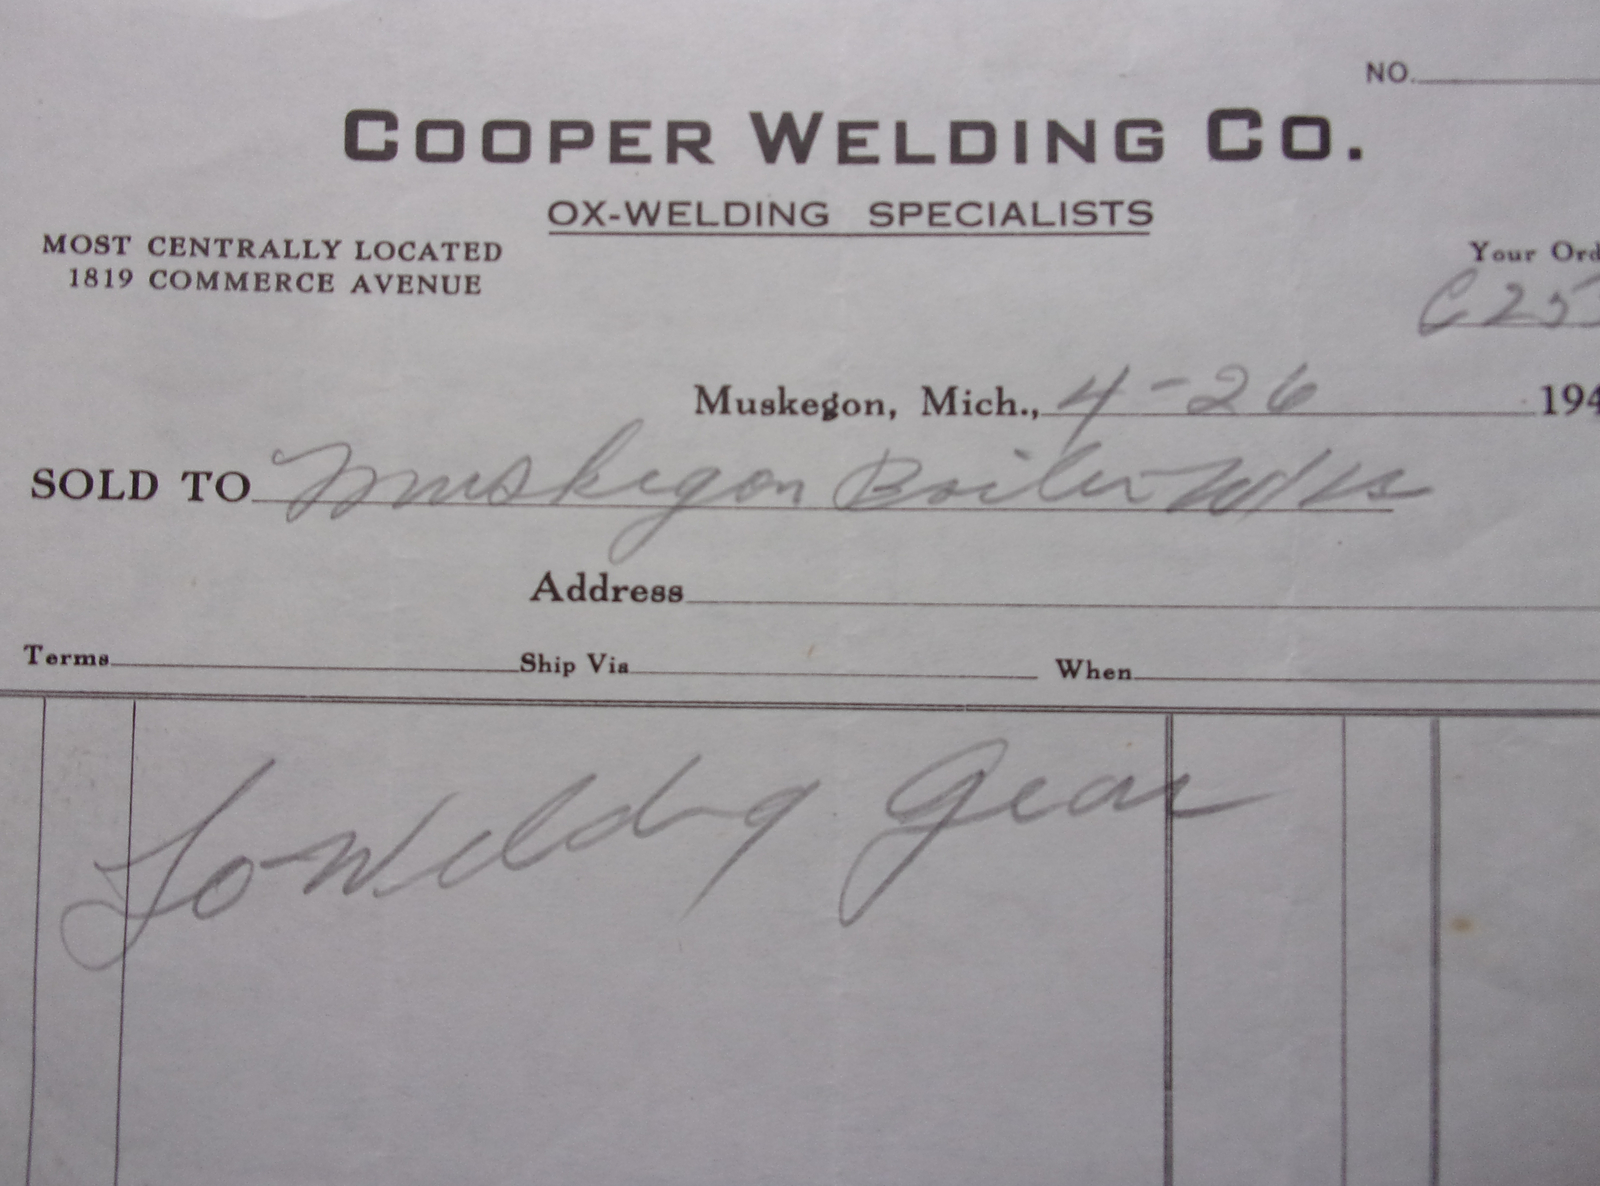 NO.
COOPER WELDING CO.
OX-WELDING SPECIALISTS
MOST CENTRALLY LOCATED
1819 COMMERCE AVENUE
Your Ord
C25
Muskegon, Mich., 4-26 194
SOLD TO Muskegon Boiler Wks
Address
Terms Ship Via When
To Welding Gear